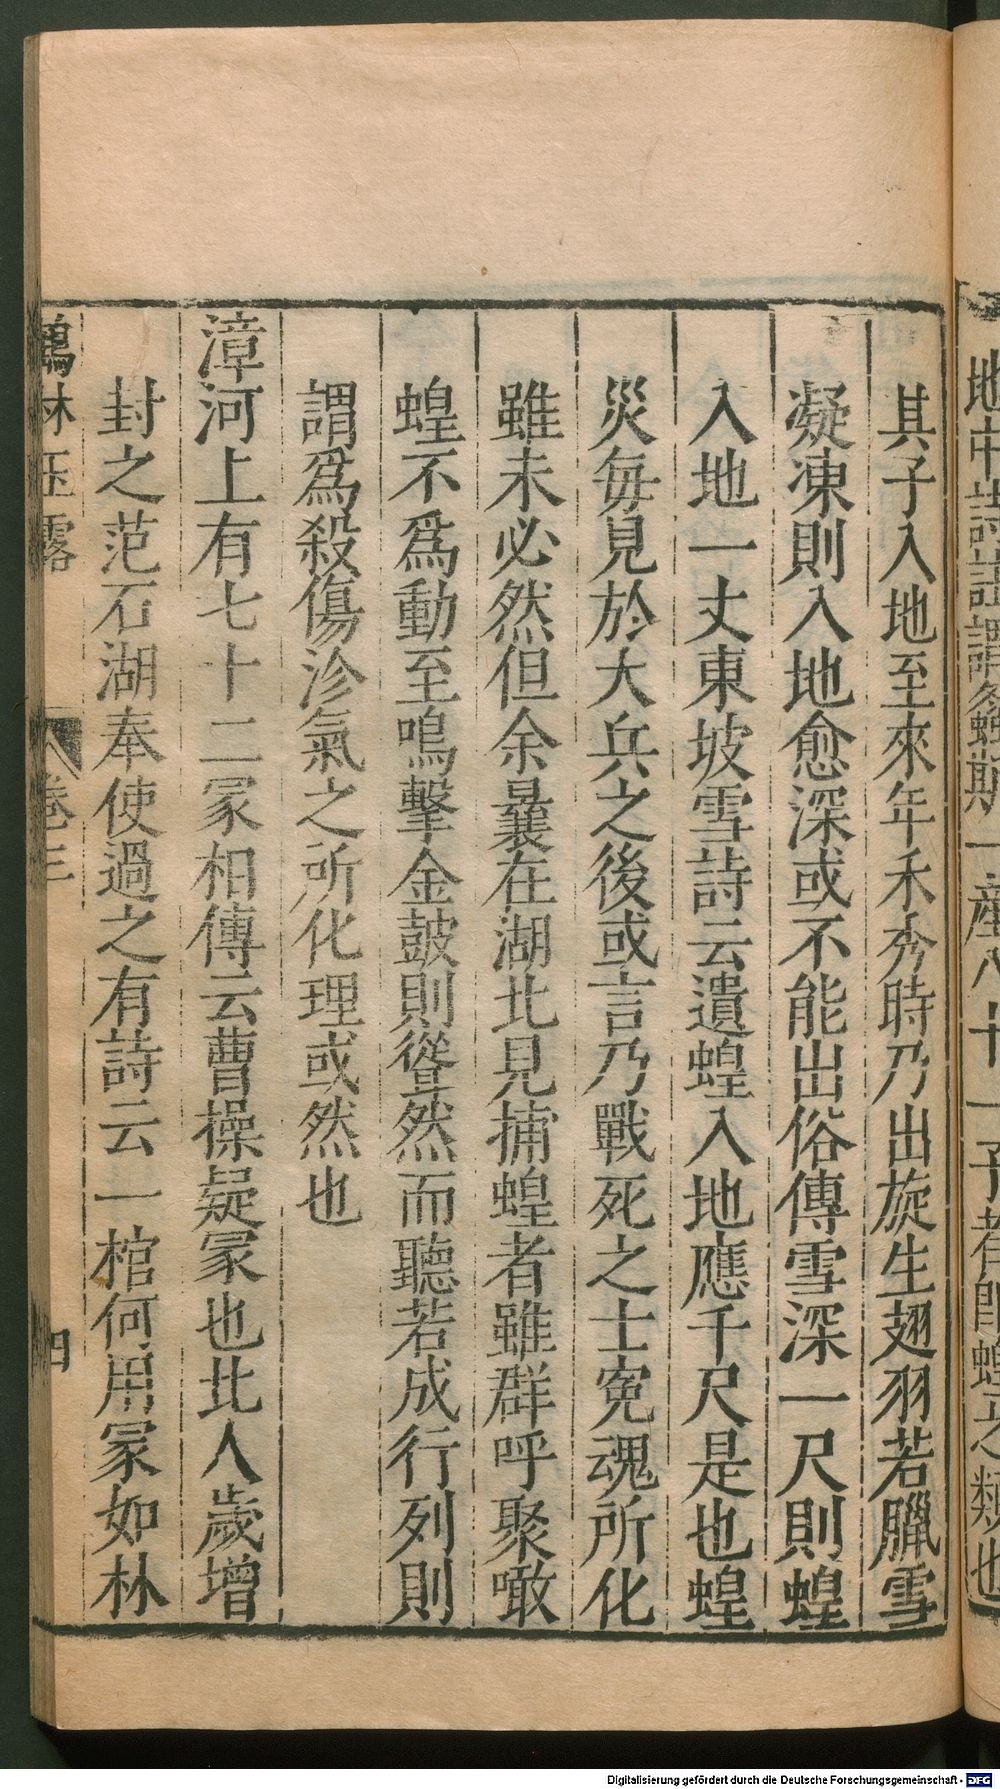 地中詩註謂螽斯一産八十一子者即蝗之類也
其子入地至來年禾秀時乃出旋生翅羽若臘雪
凝凍則入地愈深或不能出俗傳雪深一尺則蝗
入地一丈東坡雪詩云遺蝗入地應千尺是也蝗
災每見於大兵之後或言乃戰死之士冤魂所化
雖未必然但余曩在湖北見捕蝗者雖群呼聚噉
蝗不爲動至鳴擊金鼓則聳然而聽若成行列則
謂爲殺傷沴氣之所化理或然也
漳河上有七十二冢相傳云曹操疑冢也北人歲增
封之范石湖奉使過之有詩云一棺何用冢如林
鶴林玉露 卷三 四
Digitalisierung gefördert durch die Deutsche Forschungsgemeinschaft - DFG